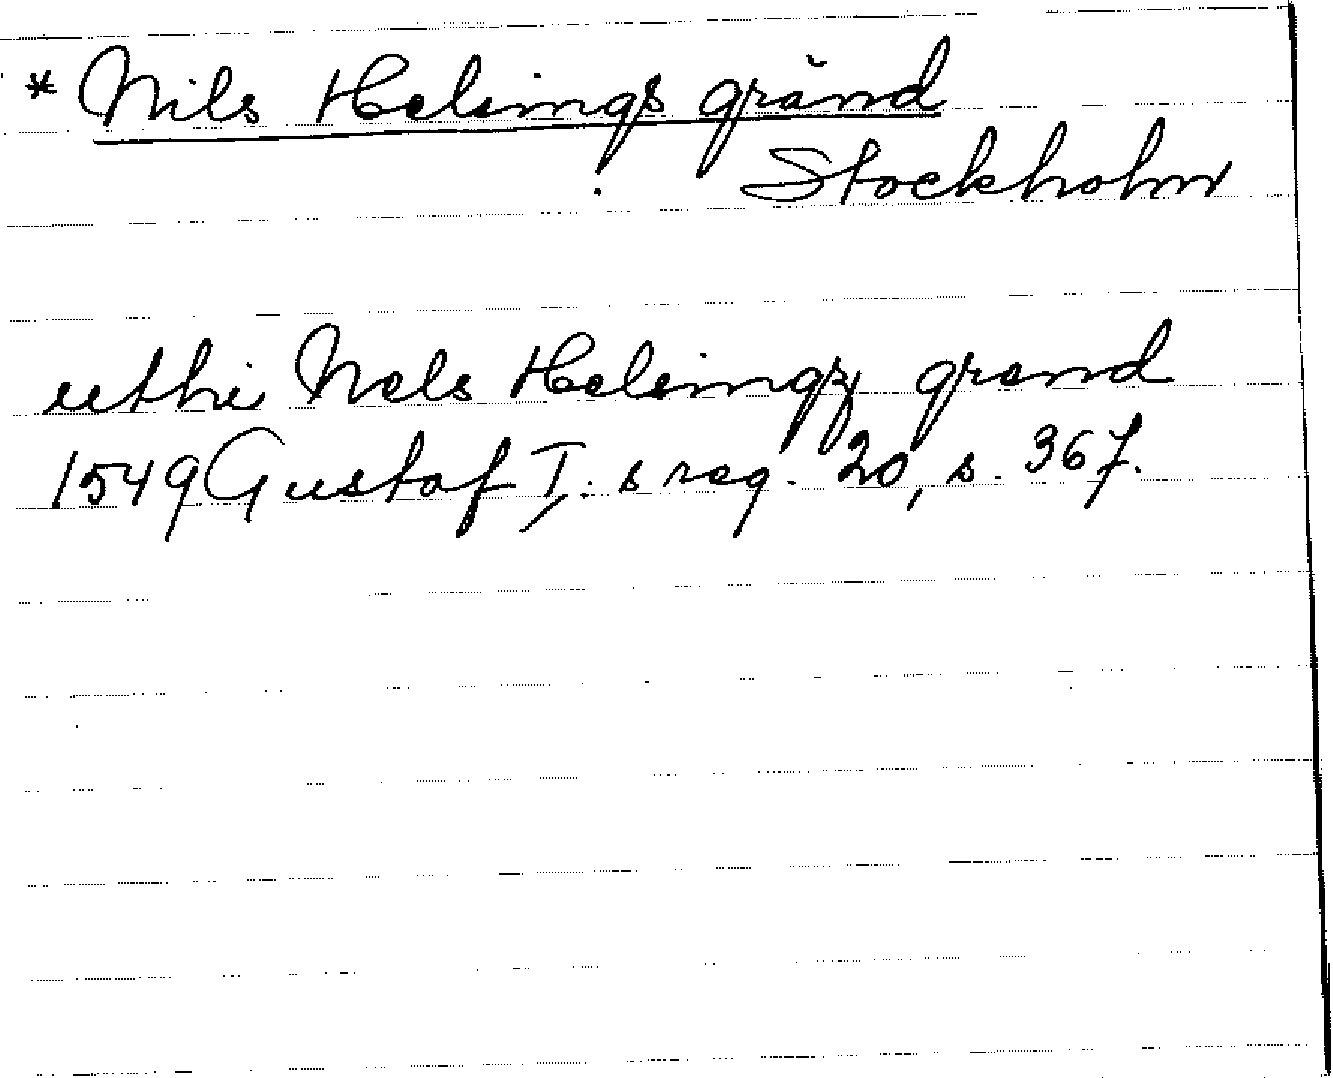 * Nils Helsings gränd
Stockholm
uthi Nels Helsingz grend
1549 Gustaf I:s reg. 20, s. 367.